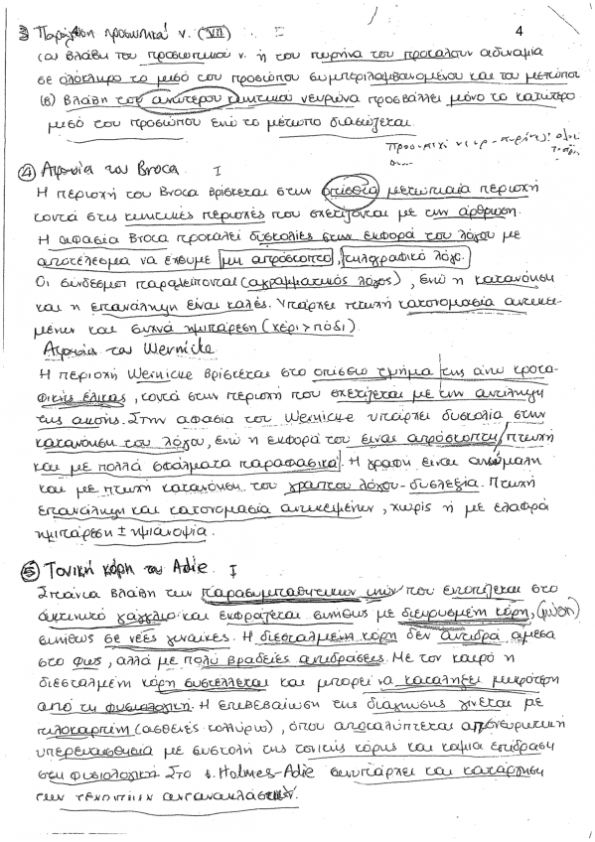 3) Παράλυση προσωπικού ν. (VII) 4
(α) Βλάβη του προσωπικού ν. ή του πυρήνα του προκαλούν αδυναμία
σε ολόκληρο το μισό του προσώπου συμπεριλαμβανομένου και του μετώπου
(β) Βλάβη του ανώτερου κινητικού νευρώνα προσβάλλει μόνο το κατώτερο
μισό του προσώπου ενώ το μέτωπο διασώζεται.
4) Αφασία του Broca I
Η περιοχή του Broca βρίσκεται στην οπίσθια μετωπιαία περιοχή
κοντά στις κινητικές περιοχές που σχετίζονται με την άρθρωση.
Η αφασία Broca προκαλεί δυσκολίες στην εκφορά του λόγου με
αποτέλεσμα να έχουμε μη απρόσκοπτο, τηλεγραφικό λόγο.
Οι σύνδεσμοι παραλείπονται (αγραμματικός λόγος), ενώ η κατανόηση
και η επανάληψη είναι καλές. Υπάρχει πτωχή κατονομασία αντικει-
μένων και συχνά ημιπάρεση (χέρι > πόδι).
Αφασία του Wernicke
Η περιοχή Wernicke βρίσκεται στο οπίσθιο τμήμα της άνω κροτα-
φικής έλικας, κοντά στην περιοχή που σχετίζεται με την αντίληψη
της ακοής. Στην αφασία του Wernicke υπάρχει δυσκολία στην
κατανόηση του λόγου, ενώ η εκφορά του είναι απρόσκοπτη, πτωχή
και με πολλά σφάλματα παραφασικά. Η γραφή είναι ανώμαλη
και με πτωχή κατανόηση του γραπτού λόγου - δυσλεξία. Πτωχή
επανάληψη και κατονομασία αντικειμένων, χωρίς ή με ελαφρά
ημιπάρεση ± ημιανοψία.
5) Τονική κόρη του Adie I
Σπάνια βλάβη των παρασυμπαθητικών ινών που εντοπίζεται στο
ακτινικό γάγγλιο και εκφράζεται συνήθως με διευρυσμένη κόρη, (μύση)
συνήθως σε νέες γυναίκες. Η διεσταλμένη κόρη δεν αντιδρά άμεσα
στο φως, αλλά με πολύ βραδείες αντιδράσεις. Με τον καιρό η
διεσταλμένη κόρη συστέλλεται και μπορεί να καταλήξει μικρότερη
από τη φυσιολογική. Η επιβεβαίωση της διάγνωσης γίνεται με
πιλοκαρπίνη (ασθενές κολλύριο), όπου αποκαλύπτεται απονευρωτική
υπερευαισθησία με συστολή της τονικής κόρης και καμία επίδραση
στη φυσιολογική. Στο s. Holmes-Adie συνυπάρχει και κατάργηση
των τενοντίων αντανακλαστικών.